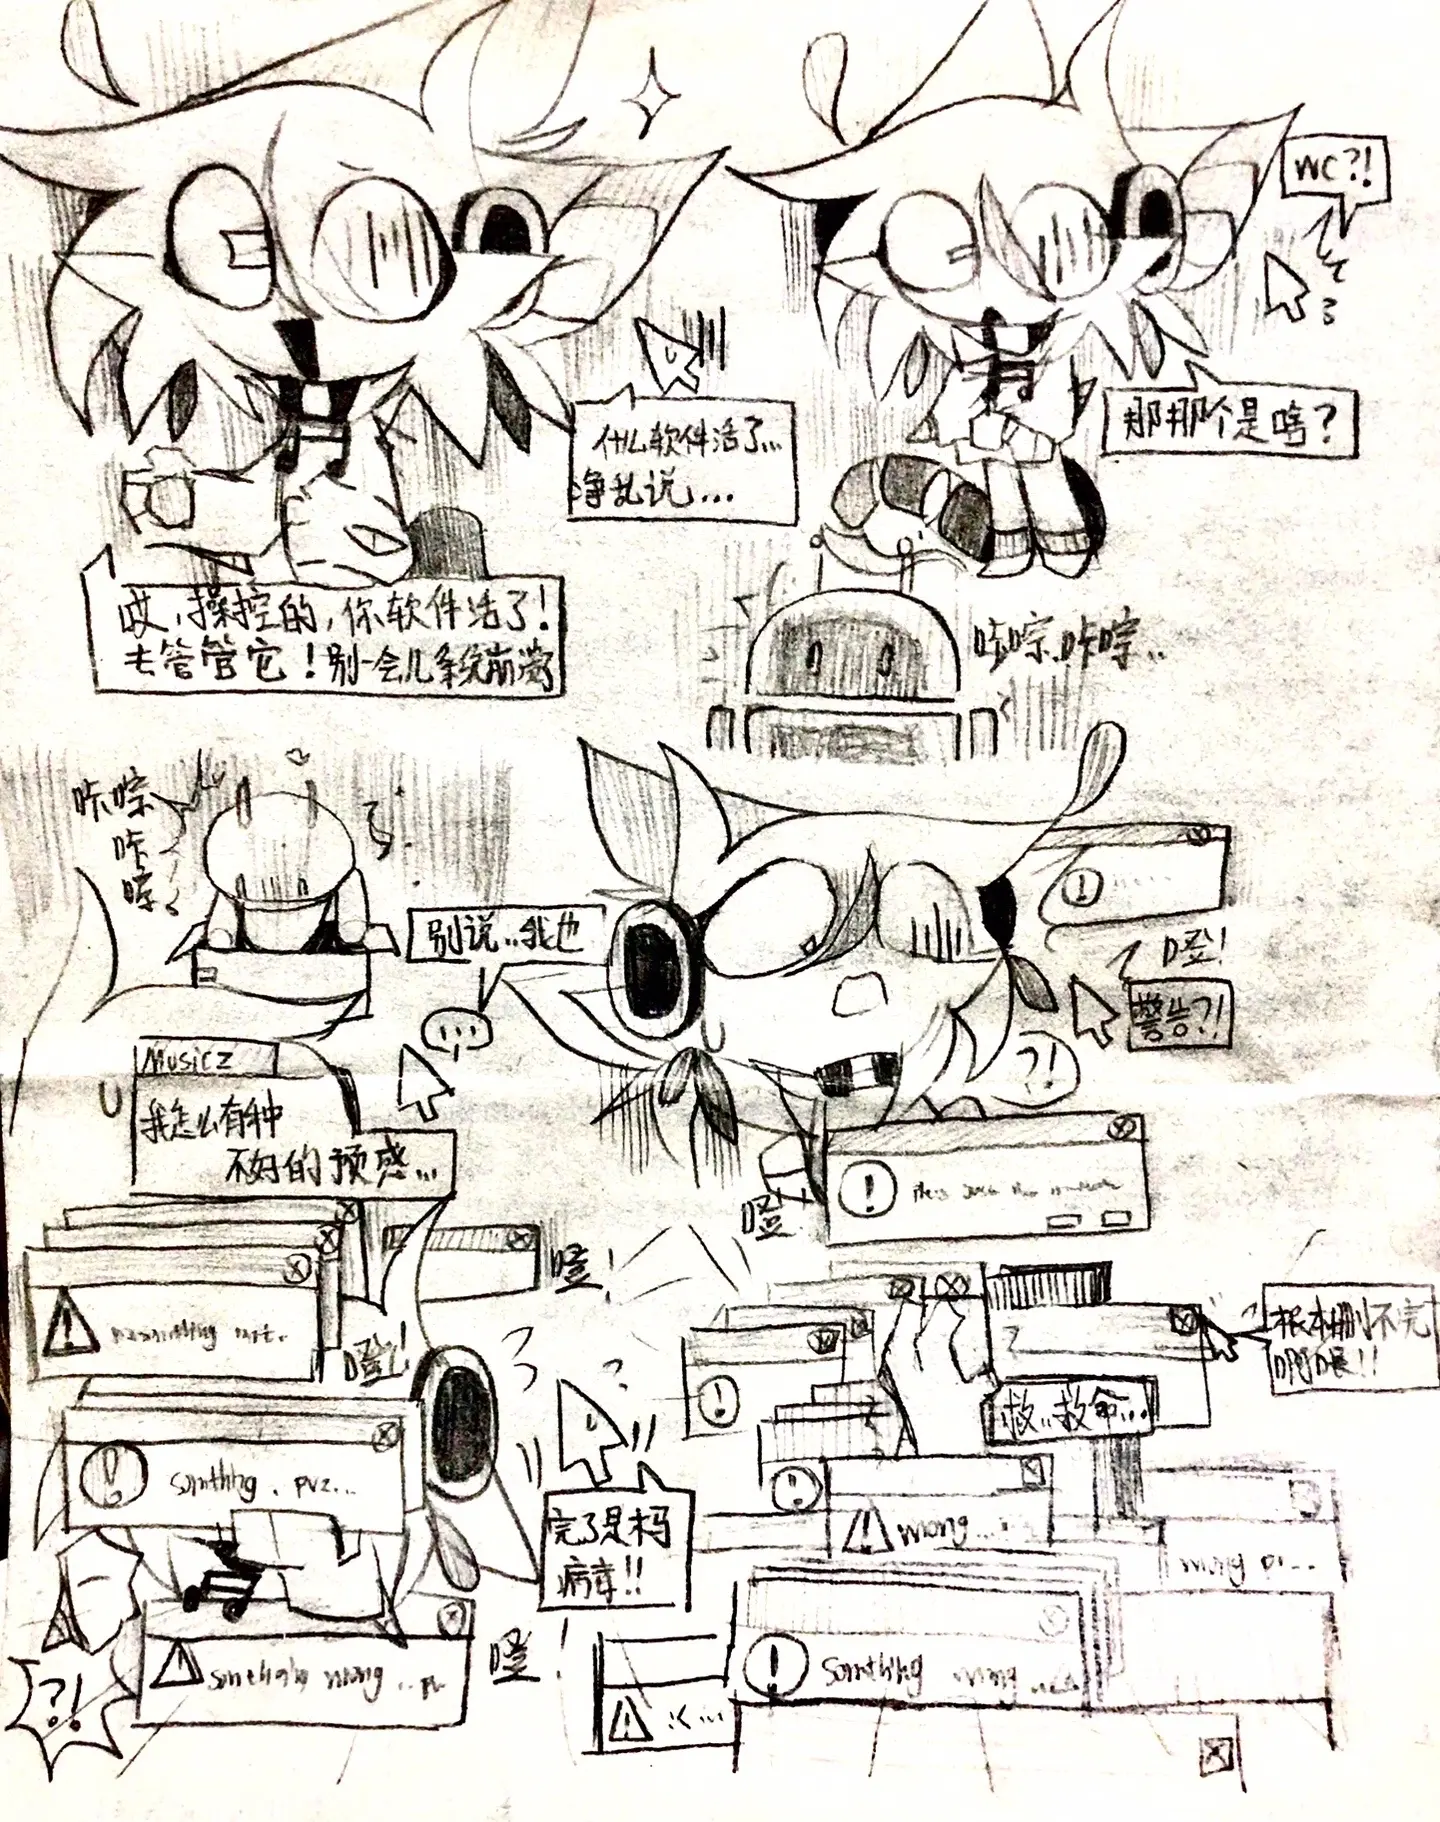 WC?!
什么软件活了...
净乱说...
那那个是啥?
哎,操控的,你软件活了!
去管管它!别一会儿系统崩溃了
咔嚓咔嚓...
咔嚓
咔
嚓
别说..我也
噔!
警告?!
...
Musicz
?!
我怎么有种
不好的预感...
噔
噔!
噔!
根本删不完
啊喂!!
救..救命...
somthing . pvz...
完了是木马
病毒!!
wrong...
wrong pr...
噔!
?!
somthing wrong